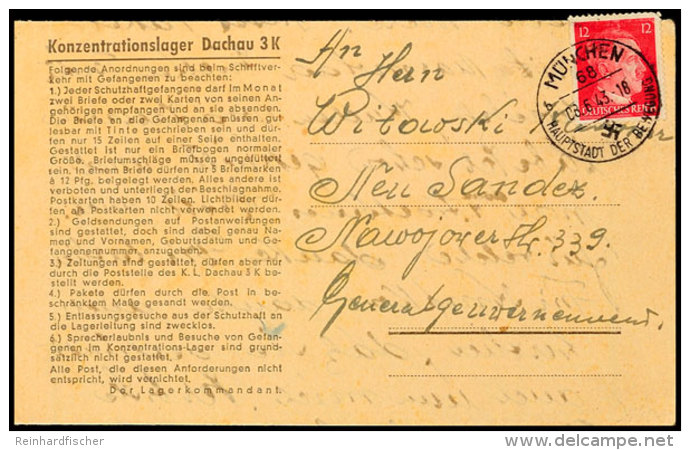 Konzentrationslager Dachau 3 K
Folgende Anordnungen sind beim Schriftver-
kehr mit Gefangenen zu beachten:
1.) Jeder Schutzhaftgefangene darf im Monat
zwei Briefe oder zwei Karten von seinen An-
gehörigen empfangen und an sie absenden.
Die Briefe an die Gefangenen müssen gut
lesbar mit Tinte geschrieben sein und dür-
fen nur 15 Zeilen auf einer Seite enthalten.
Gestattet ist nur ein Briefbogen normaler
Größe. Briefumschläge müssen ungefüttert
sein. In einem Briefe dürfen nur 5 Briefmarken
à 12 Pfg. beigelegt werden. Alles andere ist
verboten und unterliegt der Beschlagnahme.
Postkarten haben 10 Zeilen. Lichtbilder dür-
fen als Postkarten nicht verwendet werden.
2.) Geldsendungen auf Postanweisungen
sind gestattet, doch sind dabei genau Na-
men und Vornamen, Geburtsdatum und Ge-
fangenennummern anzugeben.
3.) Zeitungen sind gestattet, dürfen aber nur
durch die Poststelle des K. L. Dachau 3 K be-
stellt werden.
4.) Pakete dürfen durch die Post in be-
schränktem Maße gesandt werden.
5.) Entlassungsgesuche aus der Schutzhaft an
die Lagerleitung sind zwecklos.
6.) Sprecherlaubnis und Besuche von Gefan-
genen im Konzentrations-Lager sind grund-
sätzlich nicht gestattet.
Alle Post, die diesen Anforderungen nicht
entspricht, wird vernichtet.
Der Lagerkommandant.
An Herrn
Witowski
Neu Sandez.
Nawojower Str. 339.
Generalgouvernement.
12 12
DEUTSCHES REICH
MÜNCHEN
68
6.43-18
HAUPTSTADT DER BEWEGUNG
Reinhardfischer
delcampe.net